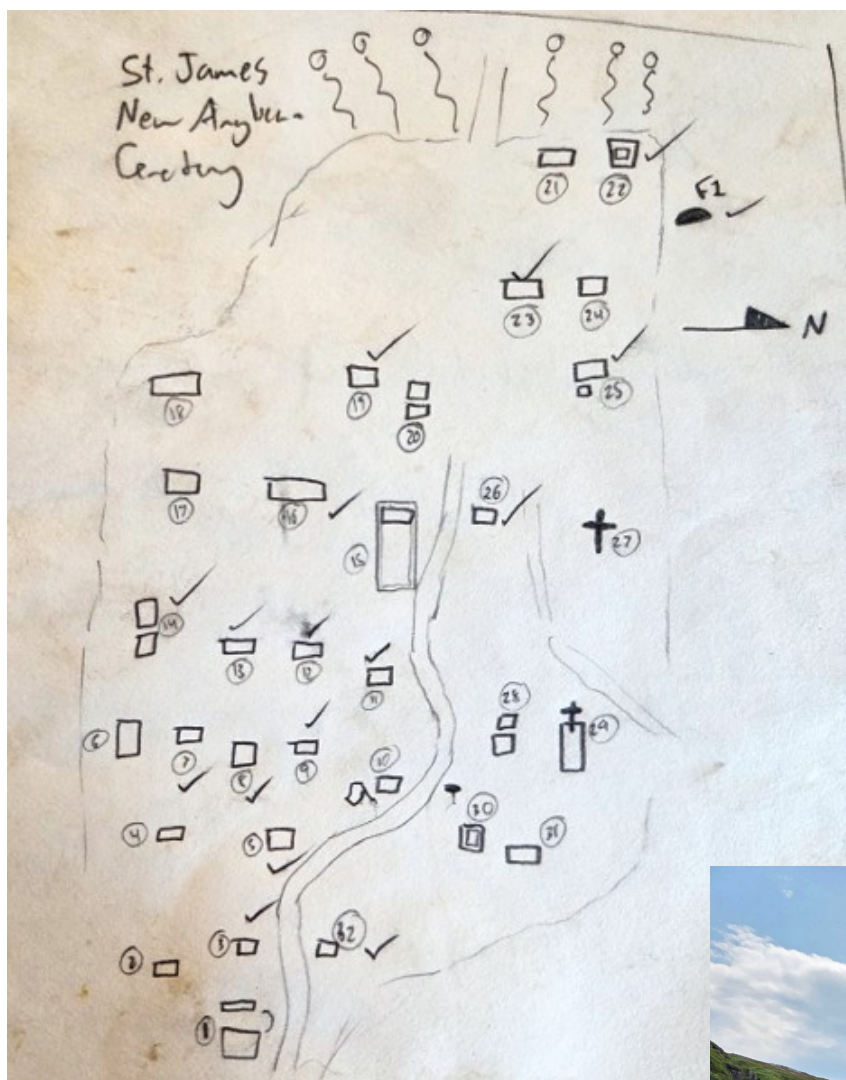 St. James
New Anglican
Cemetery
21 22
F1
23 24
N
18 19 20 25
17 16 26
15 27
14 13 12 11
28 29
6 7 8 9 10
30
4 5 31
2 3 32
1